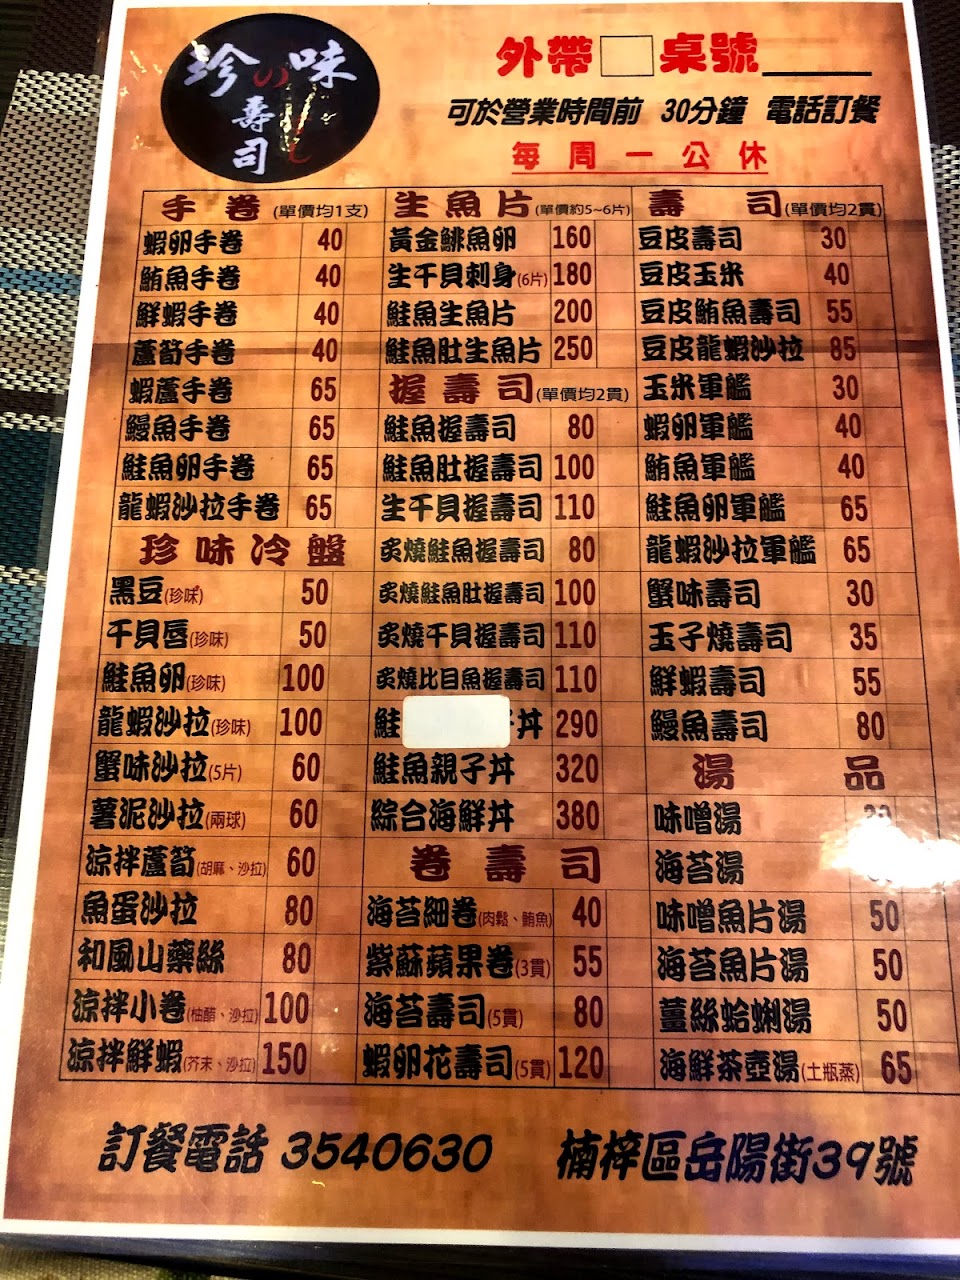 珍の味
壽司
外帶 桌號
可於營業時間前 30分鐘 電話訂餐
每周一公休
手卷(單價均1支)
蝦卵手卷 40
鮪魚手卷 40
鮮蝦手卷 40
蘆筍手卷 40
蝦蘆手卷 65
鰻魚手卷 65
鮭魚卵手卷 65
龍蝦沙拉手卷 65
珍味冷盤
黑豆(珍味) 50
干貝唇(珍味) 50
鮭魚卵(珍味) 100
龍蝦沙拉(珍味) 100
蟹味沙拉(5片) 60
薯泥沙拉(兩球) 60
涼拌蘆筍(胡麻、沙拉) 60
魚蛋沙拉 80
和風山藥絲 80
涼拌小卷(柚醋、沙拉) 100
涼拌鮮蝦(芥末、沙拉) 150
生魚片(單價約5~6片)
黃金鯡魚卵 160
生干貝刺身(6片) 180
鮭魚生魚片 200
鮭魚肚生魚片 250
握壽司(單價均2貫)
鮭魚握壽司 80
鮭魚肚握壽司 100
生干貝握壽司 110
炙燒鮭魚握壽司 80
炙燒鮭魚肚握壽司 100
炙燒干貝握壽司 110
炙燒比目魚握壽司 110
鮭 丼 290
鮭魚親子丼 320
綜合海鮮丼 380
卷壽司
海苔細卷(肉鬆、鮪魚) 40
紫蘇蘋果卷(3貫) 55
海苔壽司(5貫) 80
蝦卵花壽司(5貫) 120
壽司(單價均2貫)
豆皮壽司 30
豆皮玉米 40
豆皮鮪魚壽司 55
豆皮龍蝦沙拉 85
玉米軍艦 30
蝦卵軍艦 40
鮪魚軍艦 40
鮭魚卵軍艦 65
龍蝦沙拉軍艦 65
蟹味壽司 30
玉子燒壽司 35
鮮蝦壽司 55
鰻魚壽司 80
湯品
味噌湯
海苔湯
味噌魚片湯 50
海苔魚片湯 50
薑絲蛤蜊湯 50
海鮮茶壺湯(土瓶蒸) 65
訂餐電話 3540630 楠梓區岳陽街39號